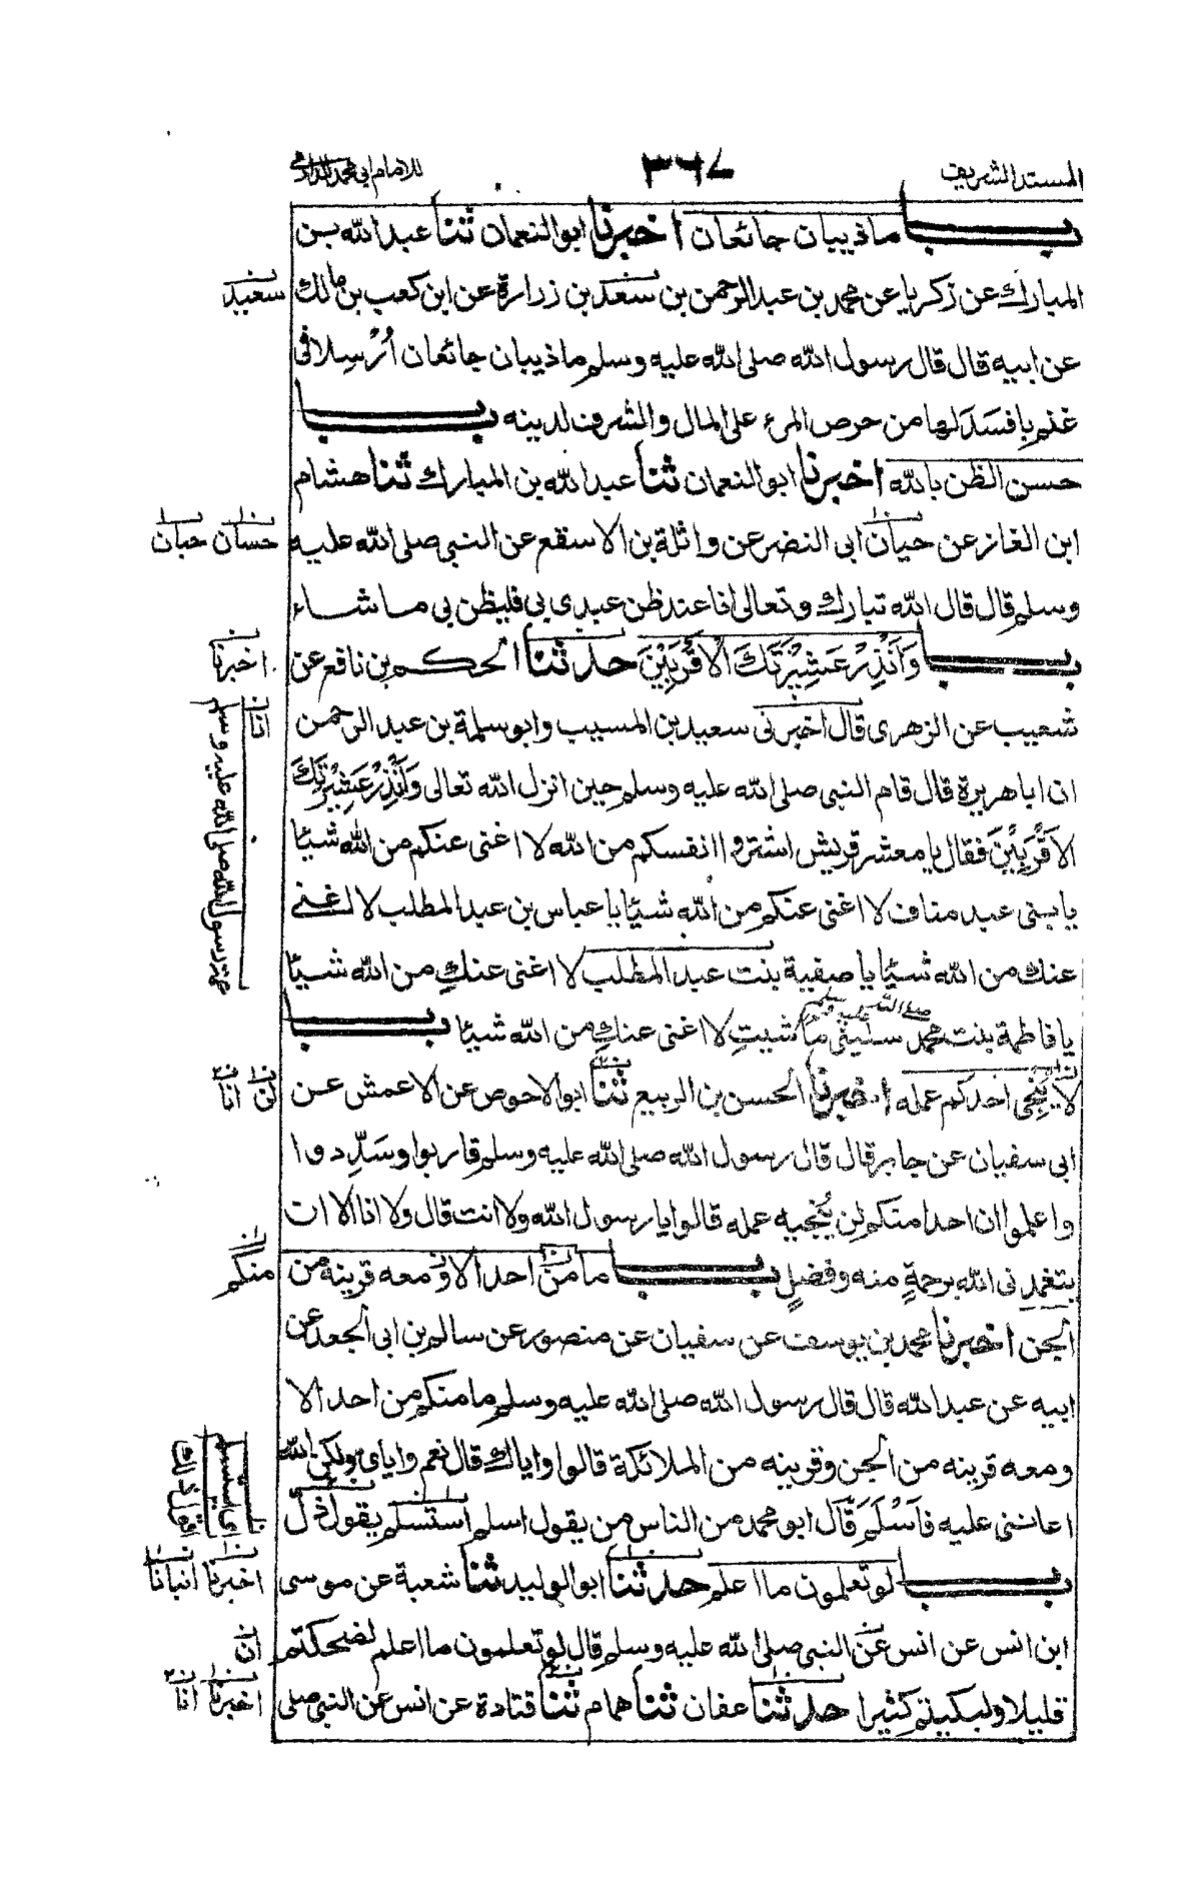 المسند الشريف ٣٦٧ للامام ابي محمد الدارمي
بــاب ماذيبان جائعان اخبرنا ابو النعمان ثنا عبد الله بن
المبارك عن زكريا عن محمد بن عبد الرحمن بن سعد بن زرارة عن ابن كعب بن مالك
سعيد
عن ابيه قال قال رسول الله صلى الله عليه وسلم ماذيبان جائعان اُرْسِلا في
غنم بافسَدَ لها من حرص المرء على المال والشرف لدينه بــاب
حسن الظن بالله اخبرنا ابو النعمان ثنا عبد الله بن المبارك ثنا هشام
ابن الغاز عن حيان ابى النضر عن واثلة بن الاسقع عن النبي صلى الله عليه
حسان حبان
وسلم قال قال الله تبارك وتعالى انا عند ظن عبدى بي فليظن بي ما شاء
بــاب وَاَنْذِرْ عَشِيْرَتَكَ الْاَقْرَبِيْنَ حدثنا الحكم بن نافع عن
اخبرنا
شعيب عن الزهرى قال اخبرنى سعيد بن المسيب وابو سلمة بن عبد الرحمن
انا
ان ابا هريرة قال قام النبى صلى الله عليه وسلم حين انزل الله تعالى وَاَنْذِرْ عَشِيْرَتَكَ
الاَقْرَبِيْنَ فقال يا معشر قريش اشتروا انفسكم من الله لا اغنى عنكم من الله شيئا
يا بنى عبد مناف لا اغنى عنكم من الله شيئا يا عباس بن عبد المطلب لا اغنى
عنك من الله شيئا يا صفية بنت عبد المطلب لا اغنى عنكِ من الله شيئا
عمة رسول الله صلى الله عليه وسلم
يا فاطمة بنت محمد صلى الله عليه وسلم سلينى ما شيتِ لا اغنى عنكِ من الله شيئا بــاب
لا يُنْجِى احدكم عمله اخبرنا الحسن بن الربيع ثنا ابو الاحوص عن الاعمش عن
لن انا
ابى سفيان عن جابر قال قال رسول الله صلى الله عليه وسلم قاربوا وسَدِّدوا
واعلموا ان احدا منكم لن يُنْجيه عمله قالوا يا رسول الله ولا انت قال ولا انا الا ان
يتغمدنى الله برحمةٍ منه وفضلٍ بــاب ما من احد الا ومعه قرينه من
منكم
الجن اخبرنا محمد بن يوسف عن سفيان عن منصور عن سالم بن ابى الجعد عن
ابيه عن عبد الله قال قال رسول الله صلى الله عليه وسلم ما منكم من احد الا
ومعه قرينه من الجن وقرينه من الملائكة قالوا واياك قال نعم واياى ولكن الله
اعاننى عليه فاَسْلَمَ قال ابو محمد من الناس من يقول اسلم استسلم يقول ذلّ
بــاب لو تعلمون ما اعلم حدثنا ابو الوليد ثنا شعبة عن موسى
اخبرنا انبانا
ابن انس عن انس عن النبى صلى الله عليه وسلم قال لو تعلمون ما اعلم لضحكتم
ان
قليلا ولبكيتم كثيرا حدثنا عفان ثنا همام ثنا قتادة عن انس عن النبى صلى
اخبرنا انا